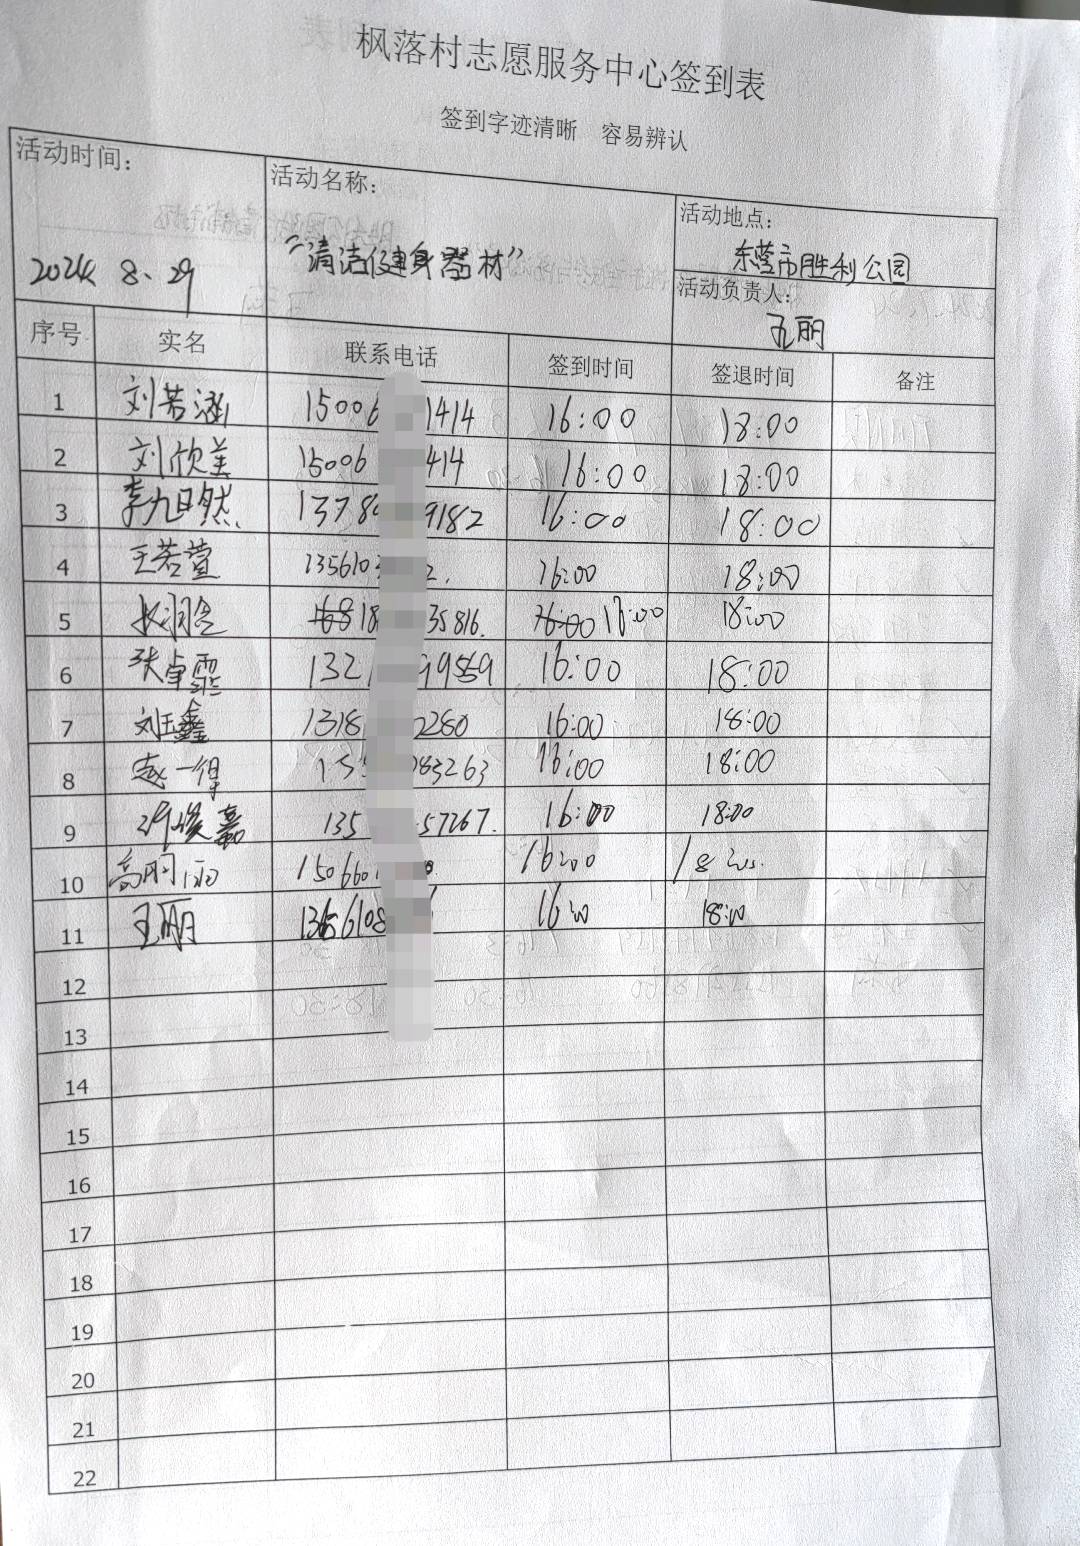 枫落村志愿服务中心签到表
签到字迹清晰 容易辨认
活动时间：
2024 8、29
活动名称：
“清洁健身器材”
活动地点：
东营市胜利公园
活动负责人：
孔丽
序号 实名 联系电话 签到时间 签退时间 备注
1 刘芳涵 15006 1414 16:00 18:00
2 刘欣美 15006 414 16:00 18:00
3 李九日然 1378 9182 16:00 18:00
4 王若萱 135610 2. 16:00 18:00
5 18 35816. 18:00
6 张卓霏 132 99559 16:00 18:00
7 刘玉鑫 1318 2280 16:00 18:00
8 赵一得 15 083263 16:00 18:00
9 嘉 135 57267. 16:00 18:00
10 高雨 150660 16:00
11 王丽 6108 18:00
12
13
14
15
16
17
18
19
20
21
22